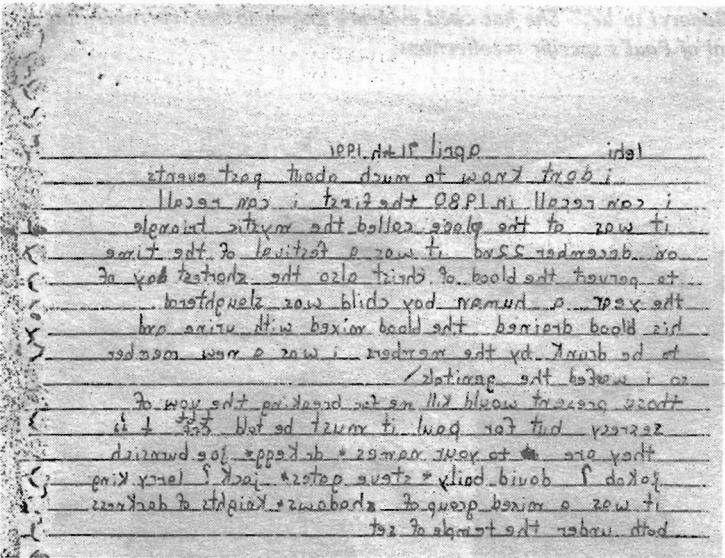 of Paul's specific involvement.
lehi april 1991
i dont know to much about past events
i can recall in 1980 the first i can recall
it was at the place called the mystic triangle
on december 22nd it was a festival of the time
to pervert the blood of christ also the shortest day of
the year a human boy child was slaughtered
his blood drained the blood mixed with urine and
to be drunk by the members i was a new member
so i the
those present would kill me for breaking the vow of
but for paul it must be told
they are to your names * dr kegg * joe
jakob ? david baily * steve gates * jack ? larry king
it was a mixed group of shadows * knights of darkness
both under the temple of set